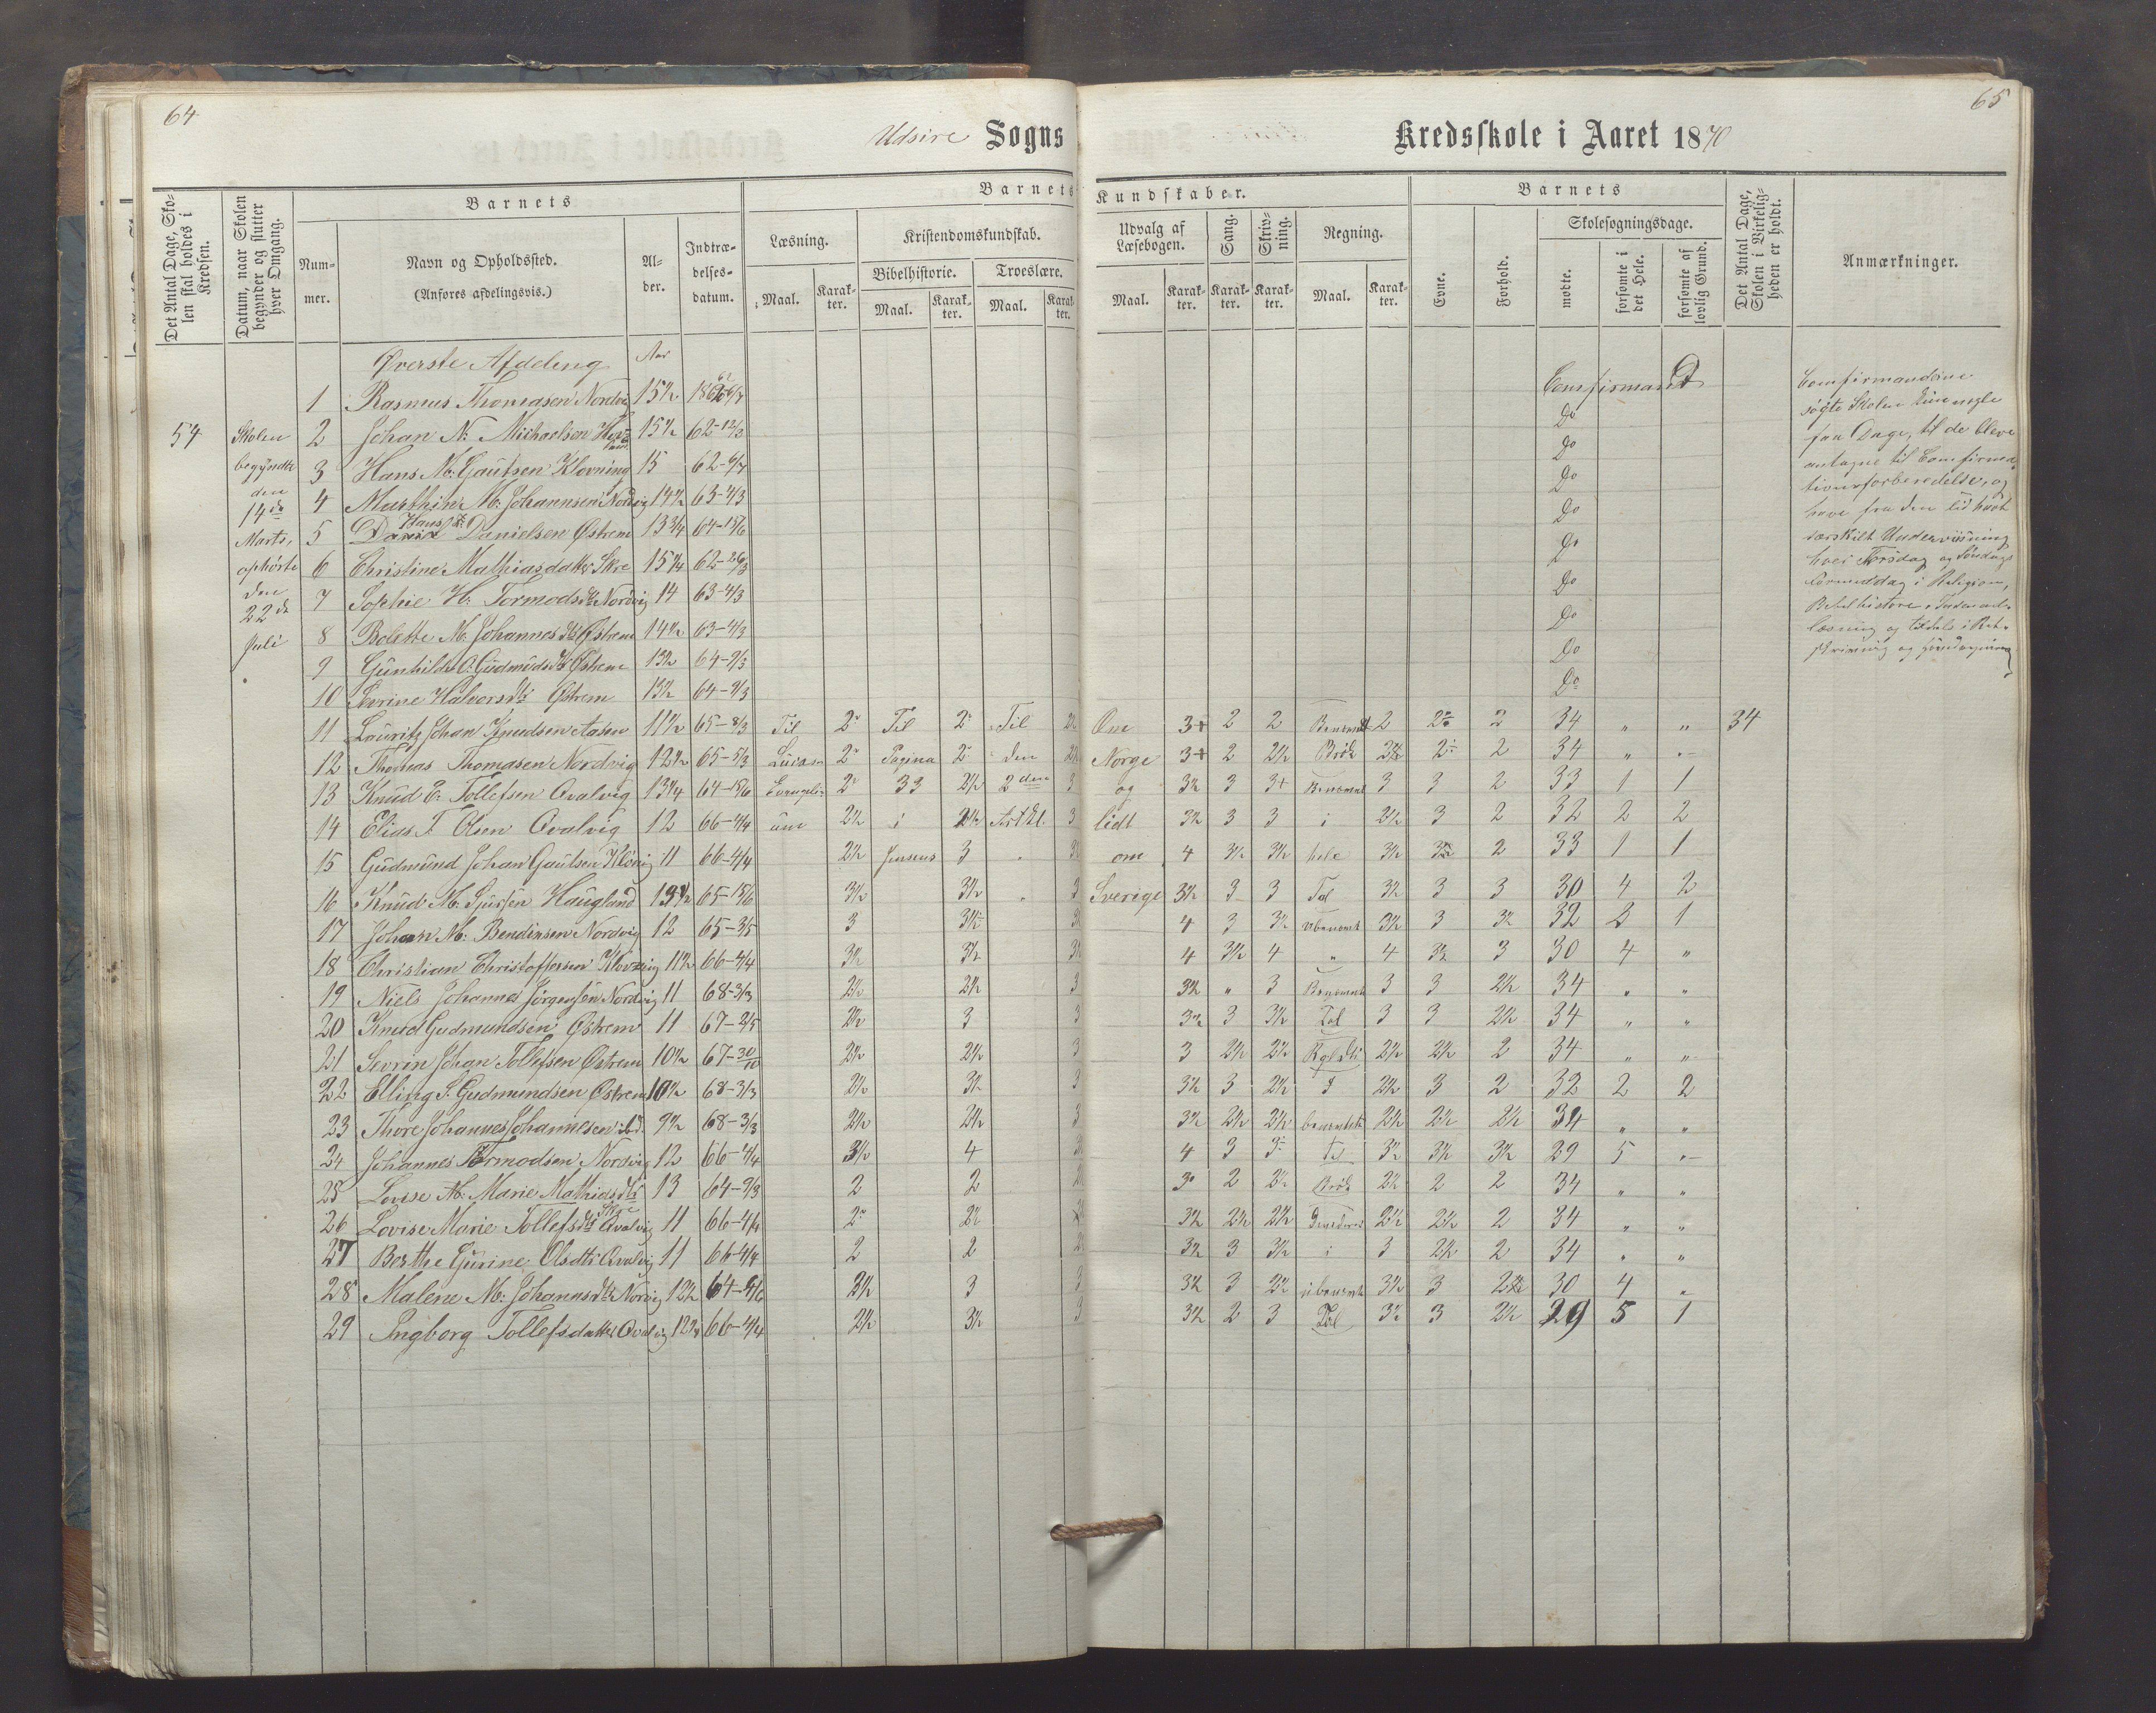 64
65
Udsire Sogns Kredsskole i Aaret 1870
Det Antal Dage, Skolen skal holdes i Kredsen.
Datum, naar Skolen begynder og slutter hver Omgang.
Barnets
Nummer.
Navn og Opholdssted.
(Anføres afdelingsvis.)
Alder.
Indtrædelsesdatum.
Barnets Kundskaber.
Læsning.
Maal. Karakter.
Kristendomskundskab.
Bibelhistorie. Troeslære.
Maal. Karakter. Maal. Karakter.
Udvalg af Læsebogen.
Maal. Karakter.
Sang. Karakter.
Skrivning. Karakter.
Regning.
Maal. Karakter.
Barnets
Evne.
Forhold.
Skolesøgningsdage.
mødte.
forsømte i det Hele.
forsømte af lovlig Grund.
Det Antal Dage, Skolen i Virkeligheden er holdt.
Anmærkninger.
Øverste Afdeling Aar
54
Skolen
begyndte
den
14de
Marts,
ophørte
den
22de
Juli
1 Rasmus Thomasen Nordvig 15½ Comfirmand
2 Johan N. Michaelsen 15½ 62-12/3 Do
3 Hans N. Gautsen Klovning 15 Do
4 Marthin M. Johannsen Nordvig 14½ 63-4/3 Do
5 Hans Danielsen Østrem 13¾ 64-15/6 Do
6 Christine Mathiasdatter Skre 15¼ 62-26/3 Do
7 Sophie H. Tormodsdtr Nordvig 14 63-4/3 Do
8 Bolette M. Johannesdtr Østrem 14½ 63-4/3 Do
9 Gunhilde O. Gudmudsdtr Østrem 13½ 64-9/3 Do
10 Serine Halvorsdtr Østrem 13½ 64-9/3 Do
11 Lauritz Johan Knudsen Aasen 11½ 65-8/3 Til 2 Til 2 Til Om 3+ 2 2 2 2 34 " " 34
12 Thomas Thomasen Nordvig 12½ 65-5/3 Lucas 2 Pagina 2 den Norge 3+ 2 2½ Brøk 2 34 "
13 Knud E. Tollefsen Qvalvig 13¼ 64-15/6 Evangeli- 2 33 2½ 2den 3 og 3½ 3 3+ 3 3 2 33 1 1
14 Elias T. Olsen Qvalvig 12 66-4/4 um 2½ i 2½ Artikl. 3 lidt 3½ 3 3 i 3½ 3 2 32 2 2
15 Gudmund Johan Gautsen 11 66-4/4 2½ Jensens 3 om 4 3½ 3½ hele 3½ 2 33 1 1
16 Knud M. Sjursen Haugland 65-15/6 3½ 3½ 3 Sverige 3½ 3 3 Tal 3½ 3 3 30 4 2
17 Johan M. Bendiksen Nordvig 12 65-3/5 3 3½ 4 3 3½ ubenævnt 3½ 3 3½ 32 2 1
18 Christian Christoffersen 11½ 66-4/4 3½ 3½ 4 3½ 4 " 4 3½ 3 30 4 "
19 Niels Johannes Jørgensen Nordvig 11 68-3/3 2½ 2½ 3 3½ " 3 Benævnt 3 3 2½ 34 " "
20 Knud Gudmundsen Østrem 11 67-2/5 2½ 3 3 3½ 3 3½ Tal 3 3 2½ 34 " "
21 Sevrin Johan Tollefsen Østrem 10½ 67-30/10 2½ 2½ 3 3 2½ 2½ 2½ 2½ 2 34 " "
22 Elling S. Gudmundsen Østrem 10½ 68-3/3 2½ 3½ 3 3½ 3 2½ 2½ 3 2 32 2 2
23 Thore Johannes Johannesen ibd. 9½ 68-3/3 2½ 2½ 3 3½ 2½ 2½ 2½ 2½ 2½ 34 " "
24 Johannes Tormodsen Nordvig 12 66-4/4 3½ 4 4 3 3 3½ 3½ 3½ 29 5 "
25 Lovise M. Marie Mathiasdtr Skre 13 64-9/3 2 2 3 2 2½ Brøk 2½ 2 2 34 " "
26 Lovise Marie Tollefsdtr Qvalvig 11 66-4/4 2 2½ 3½ 2½ 2½ 2½ 2½ 2 34 " "
27 Berthe Gurine Olsdtr Qvalvig 11 66-4/4 2 2 3½ 3 3½ i 3 2½ 2 34 " "
28 Malene M. Johannsdtr Norvig 12½ 2½ 3 3 3½ 3 2½ ubenævnt 3½ 3 30 4 "
29 Ingborg Tollefsdatter Qvalvig 66-4/4 2½ 3½ 3 3½ 2 3 Tal 3½ 3 2½ 29 5 1
Comfirmanderne
søgte Skolen kun nogle
faa Dage, til de bleve
antagne til Comfirma-
tionsforberedelse, og
have fra den tid havt
særskilt Underviisning
hver Torsdag og Søndags
Formiddag i Religion,
Bibelhistorie, Indenad-
læsning og tildels i Ret-
skrivning og